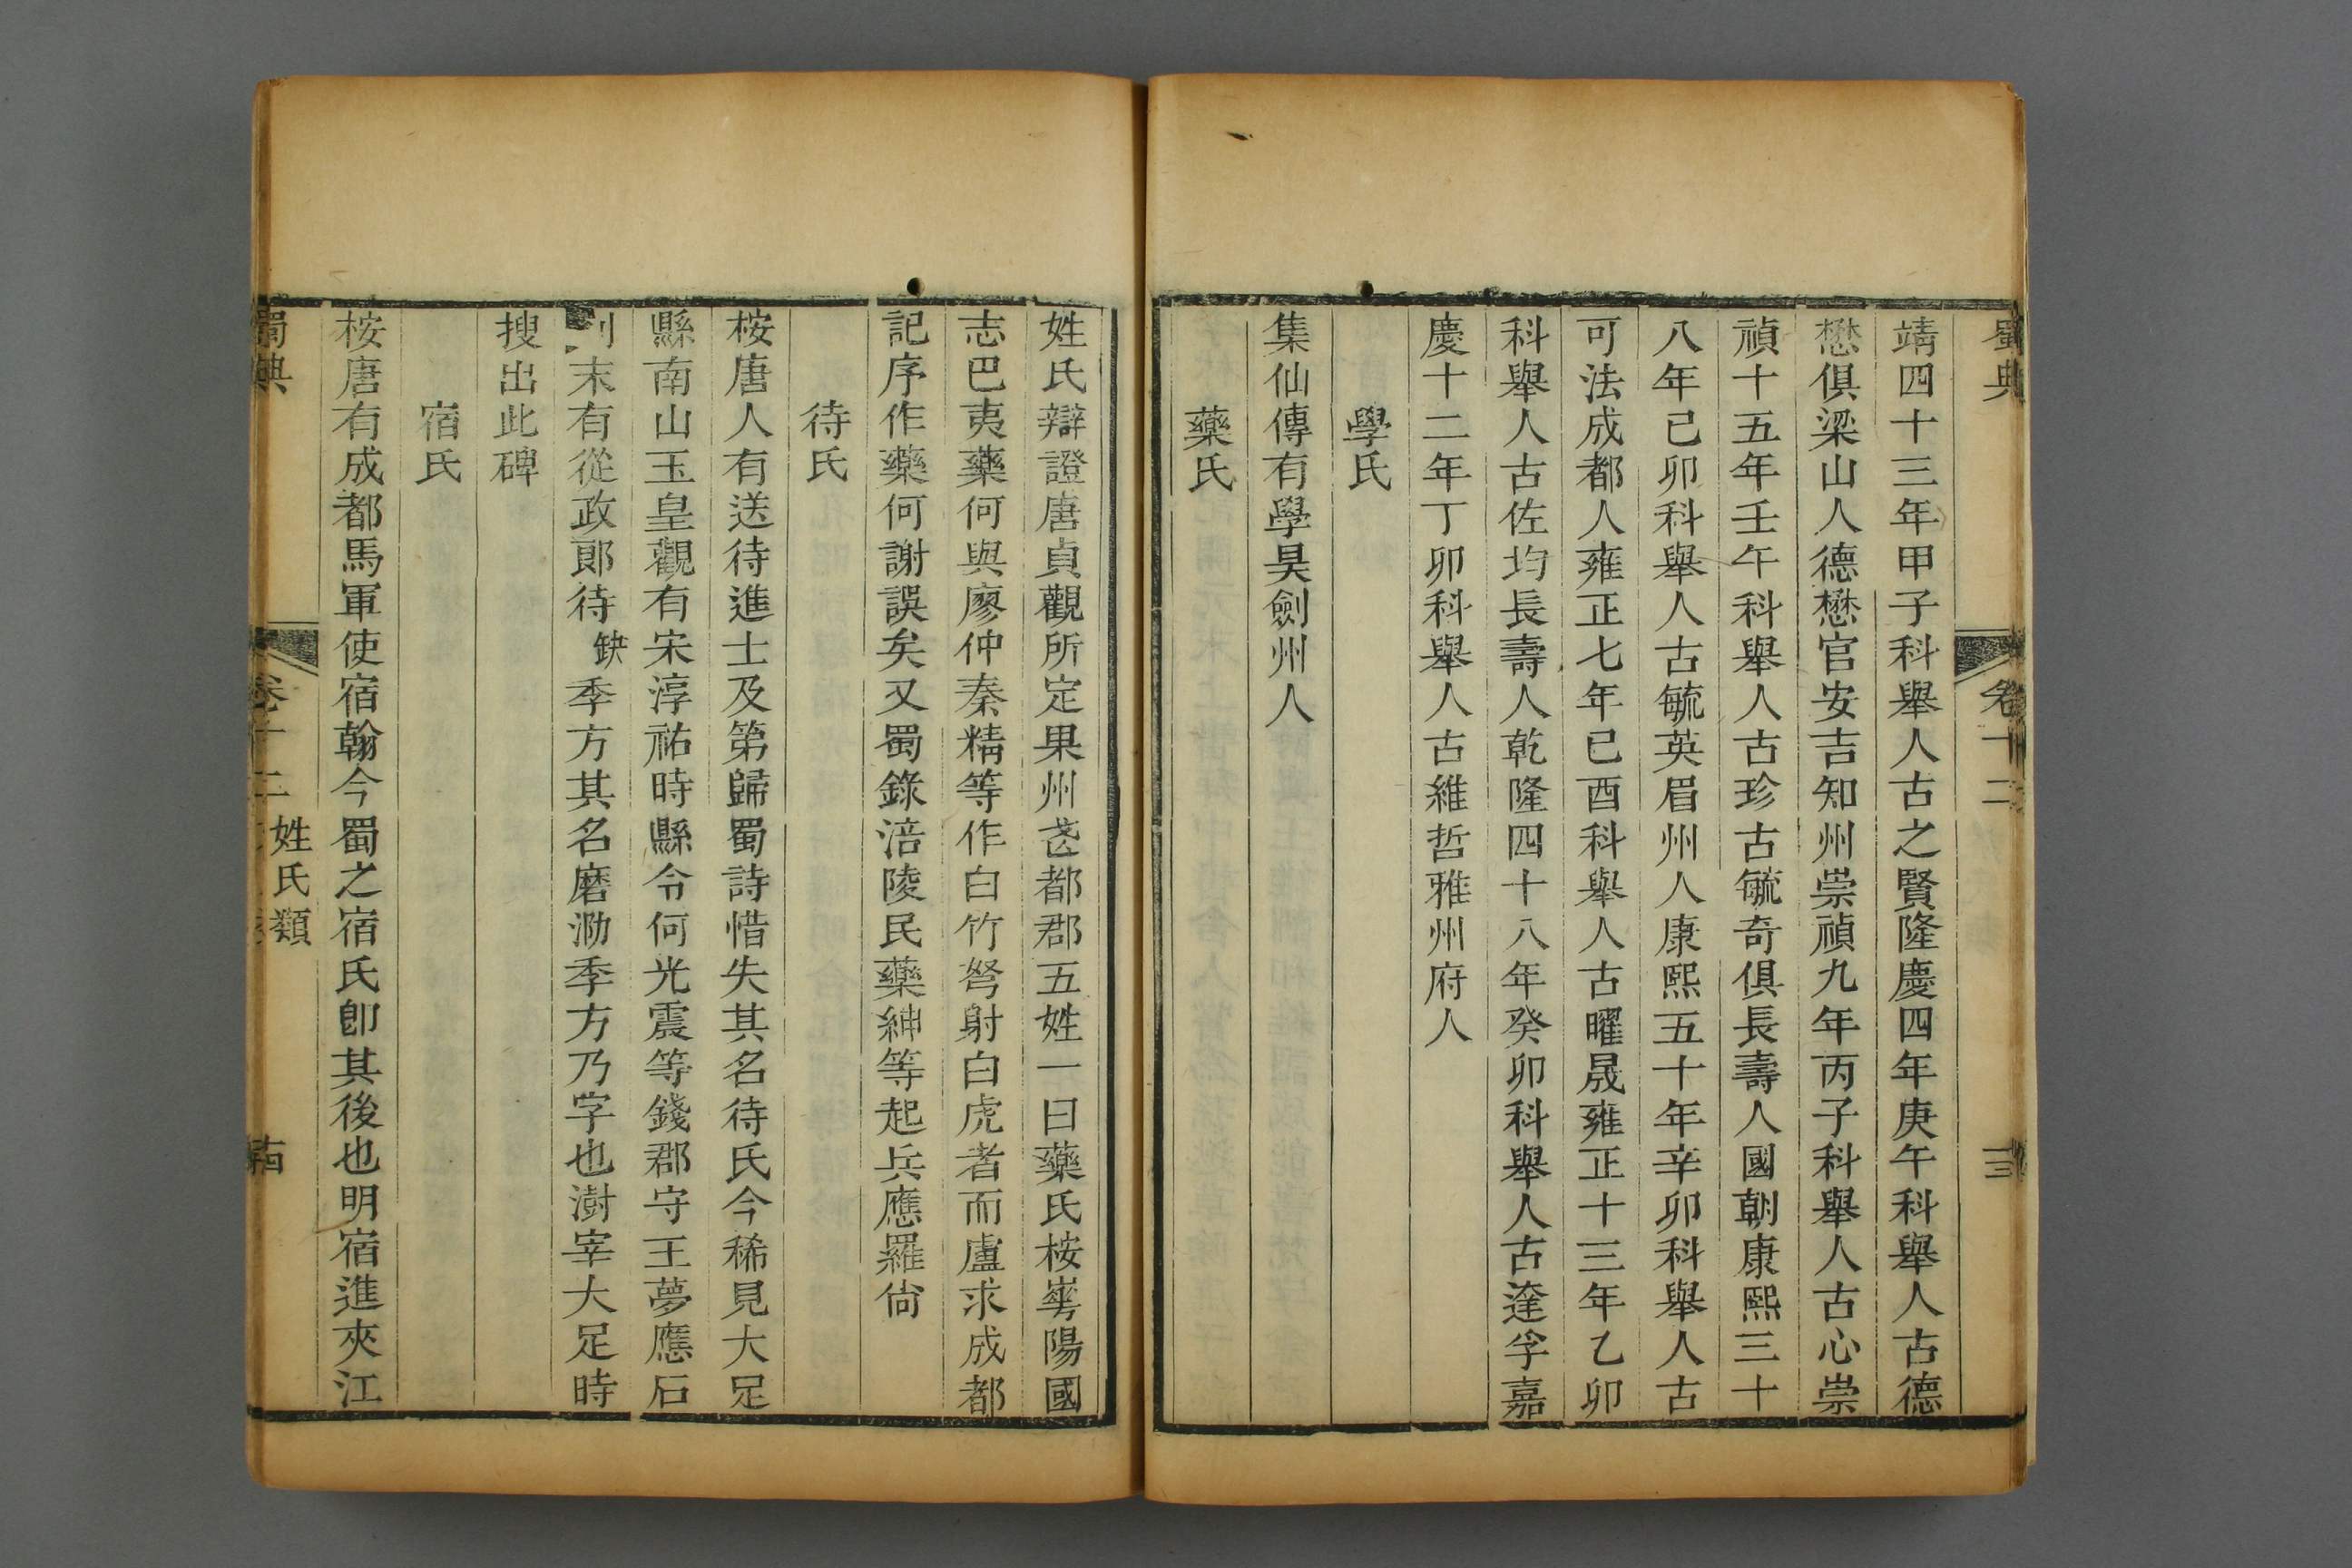 蜀典
卷十二
靖四十三年甲子科舉人古之賢隆慶四年庚午科舉人古德
懋俱梁山人德懋官安吉知州崇禎九年丙子科舉人古心崇
禎十五年壬午科舉人古珍古毓奇俱長壽人國朝康熙三十
八年己卯科舉人古毓英眉州人康熙五十年辛卯科舉人古
可法成都人雍正七年己酉科舉人古曜晟雍正十三年乙卯
科舉人古佐均長壽人乾隆四十八年癸卯科舉人古逢孚嘉
慶十二年丁卯科舉人古維哲雅州府人
學氏
集仙傳有學昊劍州人
藥氏
姓氏辯證唐貞觀所定果州武都郡五姓一曰藥氏桉華陽國
志巴夷藥何與廖仲秦精等作白竹弩射白虎者而盧求成都
記序作藥何謝誤矣又蜀錄涪陵民藥紳等起兵應羅尙
待氏
桉唐人有送待進士及第歸蜀詩惜失其名待氏今稀見大足
縣南山玉皇觀有宋淳祐時縣令何光震等錢郡守王夢應石
刻末有從政郞待缺季方其名磨泐季方乃字也澍宰大足時
搜出此碑
宿氏
桉唐有成都馬軍使宿翰今蜀之宿氏卽其後也明宿進夾江
蜀典
卷十二
姓氏類